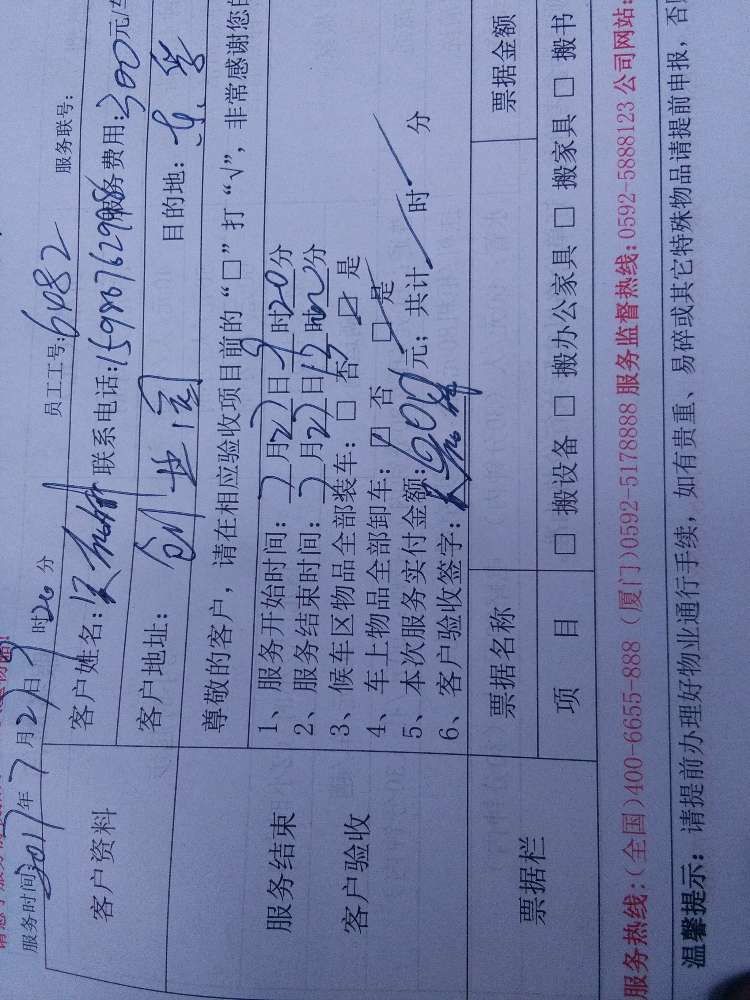 服务时间:2017年7月27日9时20分 员工工号:6482 服务联号:
客户资料
客户姓名: 联系电话:15980762998 服务费用:300元/车
客户地址: 创业园 目的地:
尊敬的客户，请在相应验收项目前的“□”打“√”，非常感谢您的
服务结束
客户验收
1、服务开始时间:7月27日9时20分
2、服务结束时间:7月27日12时 分
3、候车区物品全部装车:□ 否 ☑ 是
4、车上物品全部卸车:☑ 否 □ 是
5、本次服务实付金额: 元; 共计 时 分
6、客户验收签字:
票据栏
票据名称 票据金额
项 目 □ 搬设备 □ 搬办公家具 □ 搬家具 □ 搬书
服务热线:(全国)400-6655-888 (厦门)0592-5178888 服务监督热线:0592-5888123 公司网站:
温馨提示: 请提前办理好物业通行手续，如有贵重、易碎或其它特殊物品请提前申报，否则